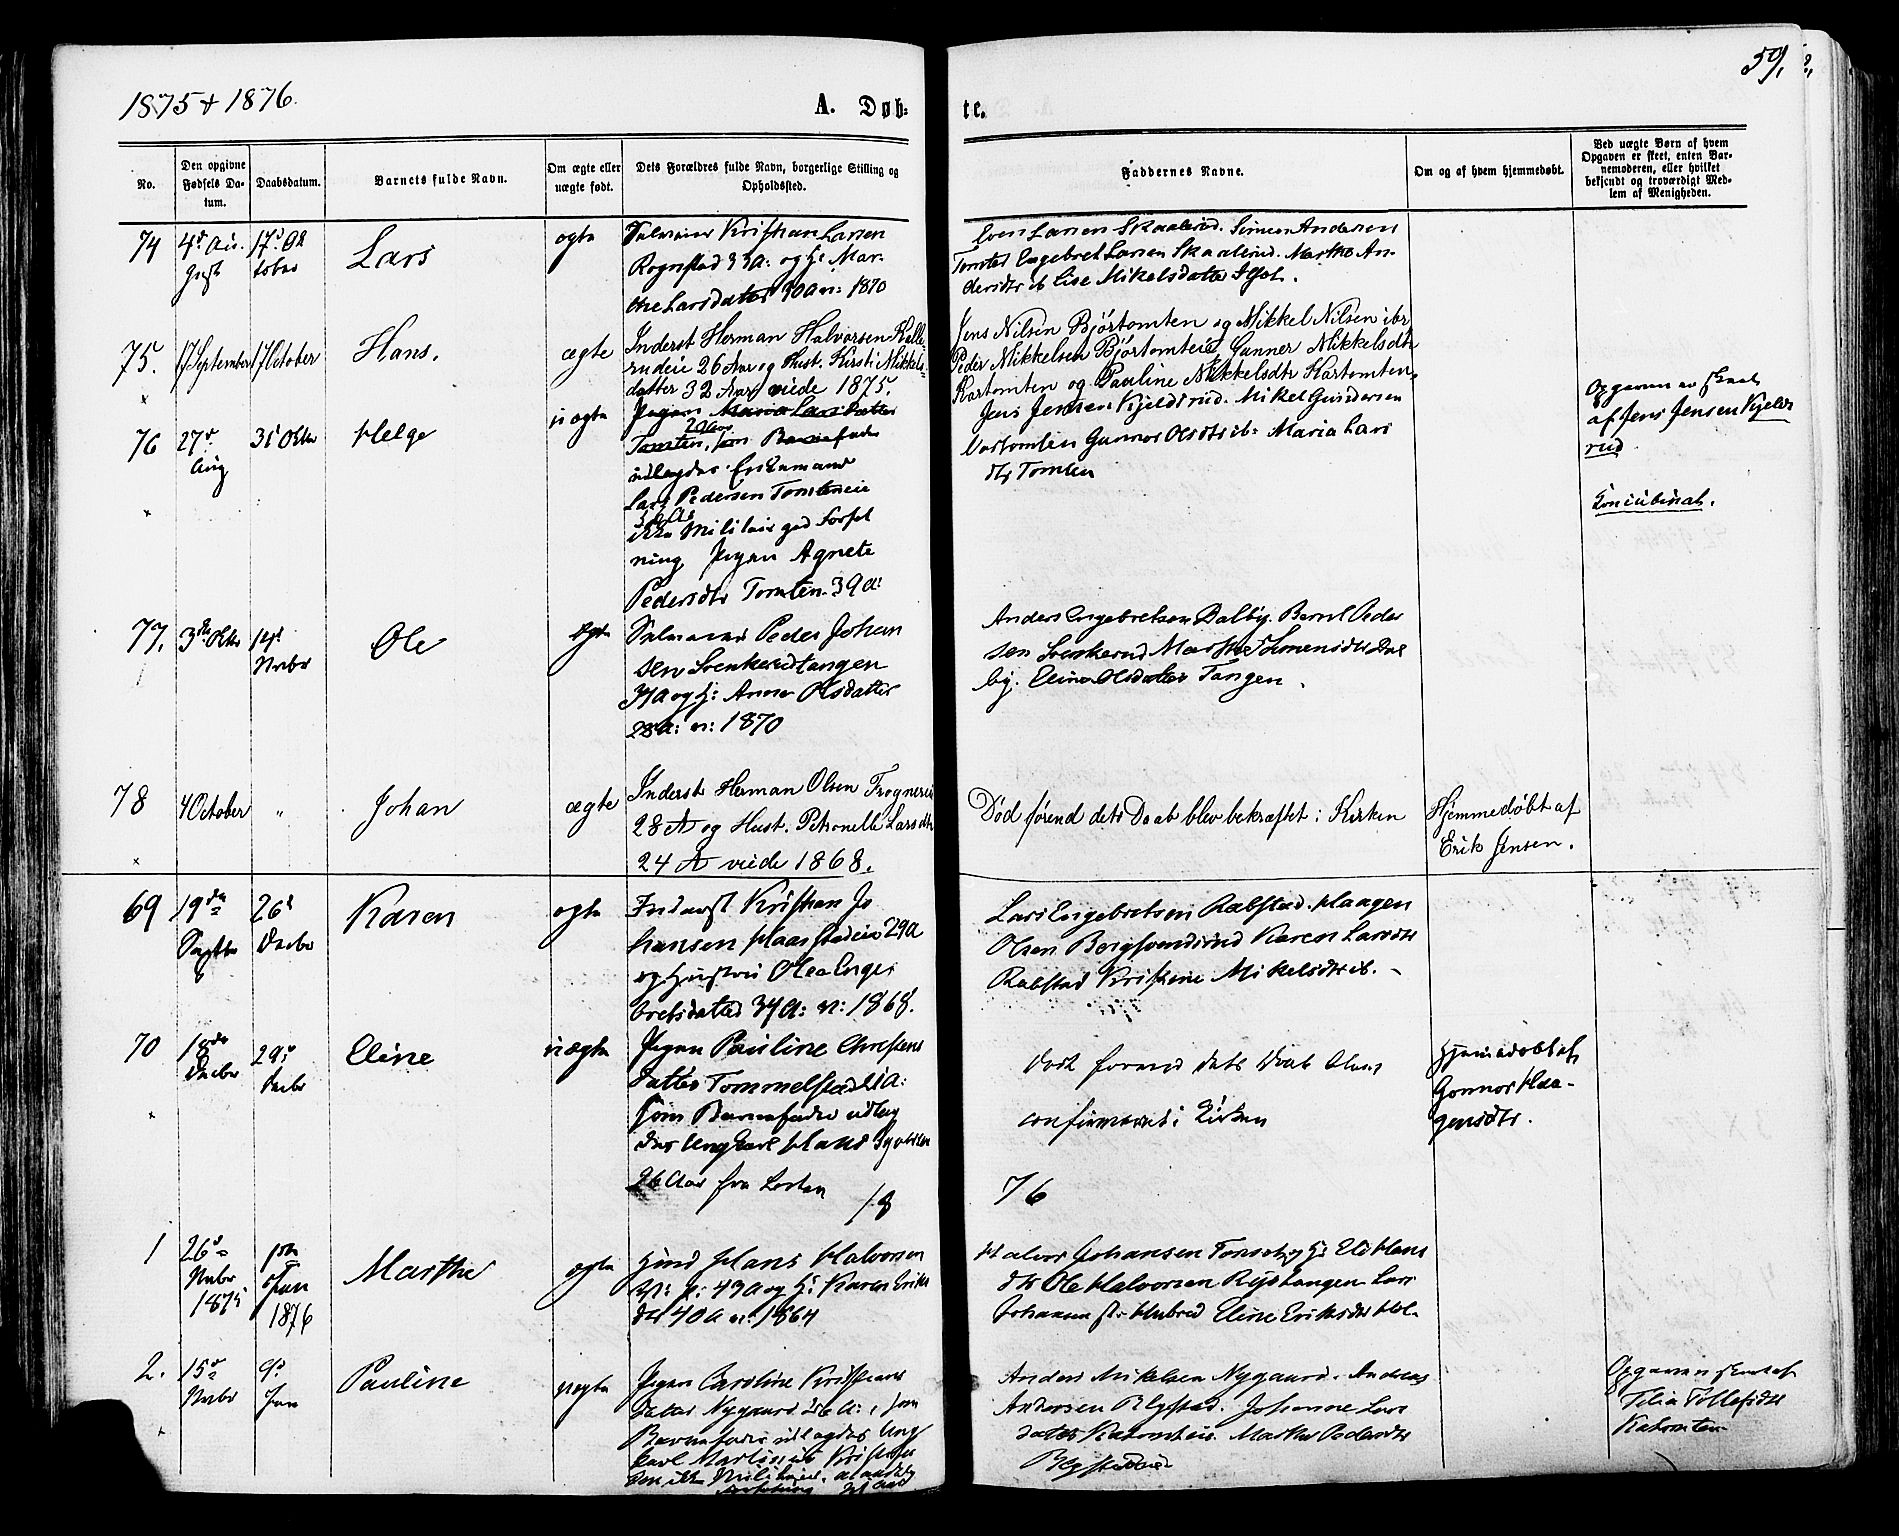 59.
1875 + 1876.
A. Døb=
te.
No.
Den opgivne Fødsels Da-
tum.
Daabsdatum.
Barnets fulde Navn.
Om ægte eller
uægte født.
Dets Forældres fulde Navn, borgerlige Stilling og
Opholdssted.
Faddernes Navne.
Om og af hvem hjemmedøbt.
Ved uægte Børn af hvem
Opgaven er skeet, enten Bar-
nemoderen, eller hvilket
bekjendt og troværdigt Med-
lem af Menigheden.
74
4d Au-
gust
17d Ok
tober
Lars
ægte
Selveier Kristian Larsen
Rognstad 33 A: og H: Mar-
the Larsdatter 30 A v: 1870
Even Larsen Skaalerud. Simen Andersen
Tomter Engebret Larsen Skaalerud. Marthe An-
dersdtr ib Lise Mikelsdatter
75.
17 September
17 October
Hans.
ægte
Inderst Herman Halvorsen
rudeie 26 Aar og Hust. Kirsti Mikkels-
datter 32 Aar, viede 1875.
Jens Nilsen Bjørtomten og Mikkel Nilsen ibr
Peder Mikkelsen Bjørtomteie, Gunner Mikkelsdtr
Kartomten og Pauline Mikkelsdtr Kartomten.
76
27d
Aug
31 Okt
Helge
uægte
Pigen Maria Larsdatter
29 Aar
Tomten, som Barnefader
udlagdes Enkemand
Lars Pedersen Tomteneie
ikke Militair gad Forsøt
ning Pigen Agnete
Pedersdtr Tomten 39 A:
Jens Jensen Kjeldsrud. Mikel Gundersen
Gunnor Olsdtr ib: Maria Lars
dtr Tomten
Opgaven er skeet
af Jens Jensen Kjelds
rud
Concubinat.
77.
3die Okt
14d
Nvbr
Ole
ægte
Selveier Peder Johan
sen Svenkerudtangen
37 A og H: Anne Olsdatter
28 A: v: 1870
Anders Engebretsen Dalby. Bernt Peder
sen Svenkerud Marthe Simensdtr Dal
by. Eline Olsdatter Tangen.
78
4 October
"
Johan
ægte
Inderst Herman Olsen Frogner
28 A og Hust. Petronelle Larsdtr
24 A viede 1868.
Død førend dets Daab blev bekræftet i Kirken
Hjemmedøbt af
Erik Jensen.
69
19de
Septbr
26d
Decbr
Karen
ægte
Inderst Kristian Jo
hansen Haarstadeie 29 A
og Hustru Olea Enge
bretsdatter 37 A: v: 1868.
Lars Engebretsen Rabstad. Haagen
Olsen Bergsvendsrud Karen Larsdtr
Rabstad Kristine Mikelsdtr ib.
70
18de
Decbr
29d
Decbr
Eline
uægte
Pigen Pauline Christens
datter Tommelstad 21 A:
som Barnefader udlag
des Ungkarl Hans
26 Aar fra Loiten
Død forend dets Daab blev
confirmeret i Kirken
Hjemmedøbt af
Gonnor Haa-
gensdtr.
18
76
1
26d
Nvbr
1875
1ste
Jan
1876
Marthe
ægte
Hmd Hans Halvorsen
43 A og H: Karen Eriks
dtr 40 A v: 1864
Halvor Johansen Tonset og H: Eli Hans
dtr Ole Halvorsen Rystangen Lars
Johannesen Hubred Eline Eriksdtr Hol-
2.
15d
Nvbr
9d
Jan
Pauline
uægte
Pigen Caroline Kristians
datter Nygaard 26 A:, som
Barnefader udlagdes Ung
karl Martinius Kristofer
sen ikke Militair,
Anders Mikelsen Nygaard. Andreas
Andersen Blystad. Johanne Lars
datter Marthe Pedersdtr
Blystadeie
Opgaven skeet af
Tollefsdtr